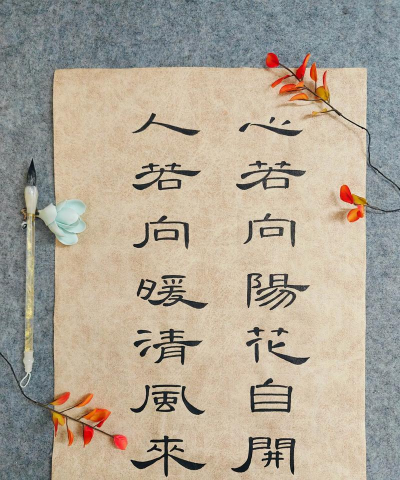 心若向陽花自開
人若向暖清風來